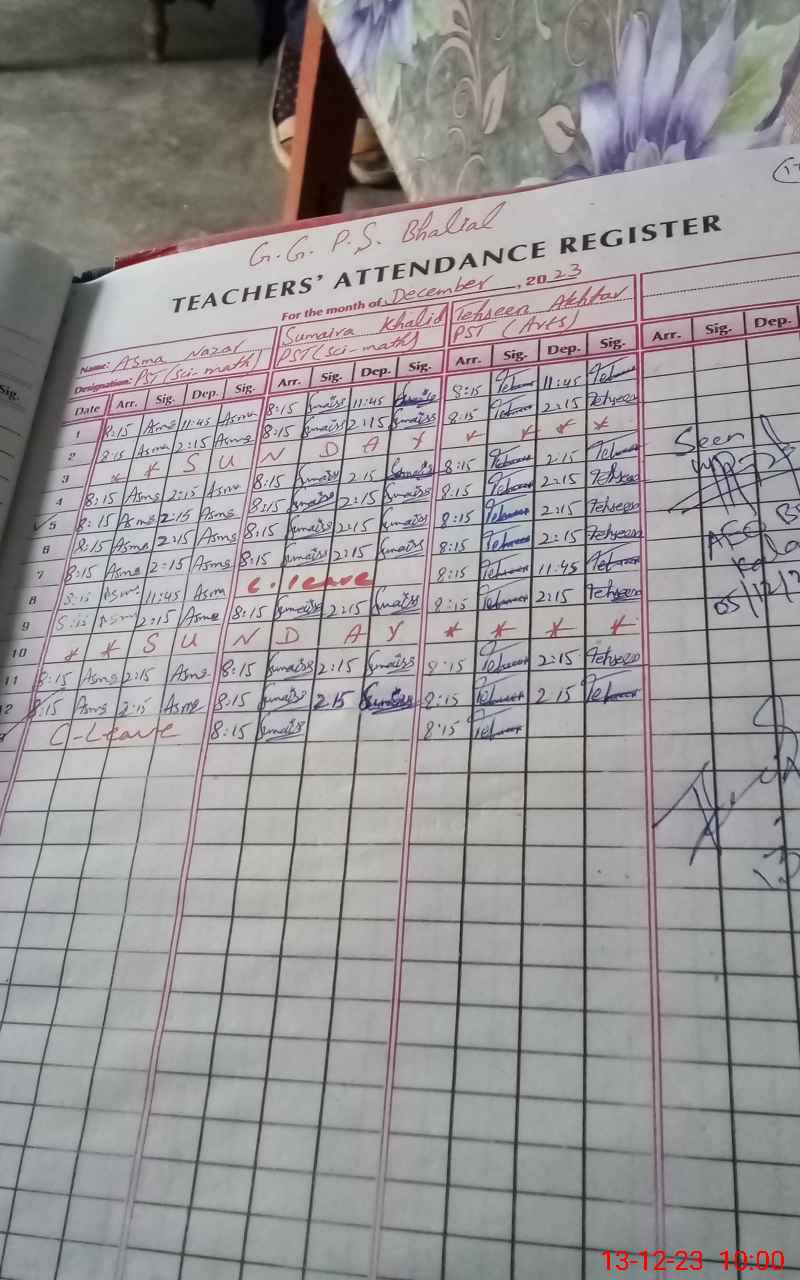 G.G. P.S. Bhalial
TEACHERS' ATTENDANCE REGISTER
For the month of December, 2023
Name: Asma Nazar Sumaira Khalid Tehseen Akhtar
Designation: PST (Sci-math) PST (Sci-math) PST (Arts)
Date Arr. Sig. Dep. Sig. Arr. Sig. Dep. Sig. Arr. Sig. Dep. Sig. Arr. Sig. Dep.
1 8:15 Asma 11:45 Asma 8:15 11:45 8:15 11:45
2 8:15 Asma 2:15 Asma 8:15 2:15 8:15 2:15 Tehseen
3 * * S U N D A Y * * * *
4 8:15 Asma 2:15 Asma 8:15 2:15 8:15 2:15
5 8:15 Asma 2:15 Asma 8:15 2:15 8:15 2:15 Tehseen
6 8:15 Asma 2:15 Asma 8:15 2:15 8:15 2:15 Tehseen
7 8:15 Asma 2:15 Asma 8:15 2:15 8:15 2:15 Tehseen
8 8:15 Asma 11:45 Asma C.leave 8:15 11:45
9 8:15 Asma 2:15 Asma 8:15 2:15 8:15 2:15 Tehseen
10 * * S U N D A Y * * * *
11 8:15 Asma 2:15 Asma 8:15 2:15 8:15 2:15 Tehseen
12 8:15 Asma 2:15 Asma 8:15 2:15 8:15 2:15
C-Leave 8:15 8:15
Seen
AEO
05/12/2
Sig.
13-12-23 10:00